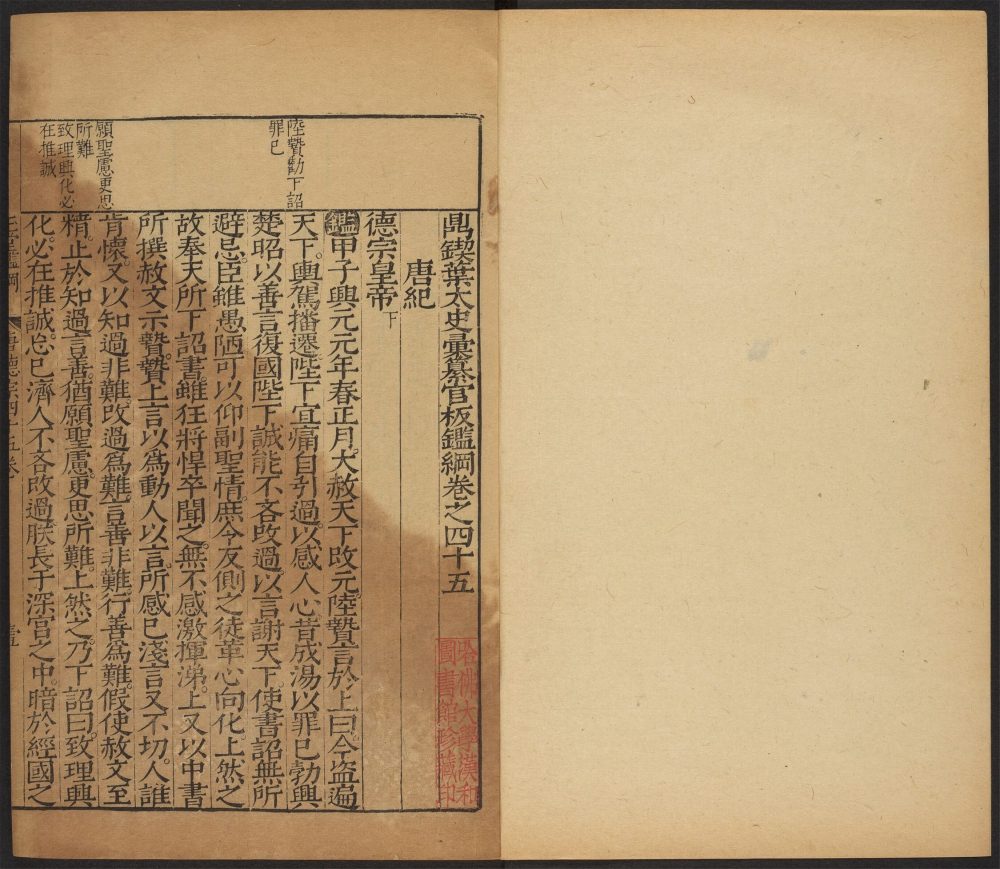 鼎鍥葉太史彙纂官板鑑綱卷之四十五
唐紀
德宗皇帝下
鑑甲子興元元年春正月。大赦天下改元。陸贄言於上曰。今盗遍
天下。輿駕播遷。陛下宜痛自引過以感人心。昔成湯以罪己勃興
楚昭以善言復國。陛下誠能不吝改過。以言謝天下。使書詔無所
避忌。臣雖愚陋可以仰副聖情。庶令反側之徒革心向化。上然之
故奉天所下詔書。雖狂將悍卒聞之。無不感激揮涕。上又以中書
所撰赦文示贄。贄上言以為動人以言。所感已淺。言又不切。人誰
肯懷。又以知過非難。改過為難。言善非難。行善為難。假使赦文至
精。止於知過言善。猶願聖慮更思所難。上然之。乃下詔曰。致理興
化。必在推誠。忘己濟人。不吝改過。朕長于深宮之中。暗於經國之
陸贄勸下詔
罪己
願聖慮更思
所難
致理興化必
在推誠
唐德宗四十五卷
哈佛大學漢和
圖書館珍藏印